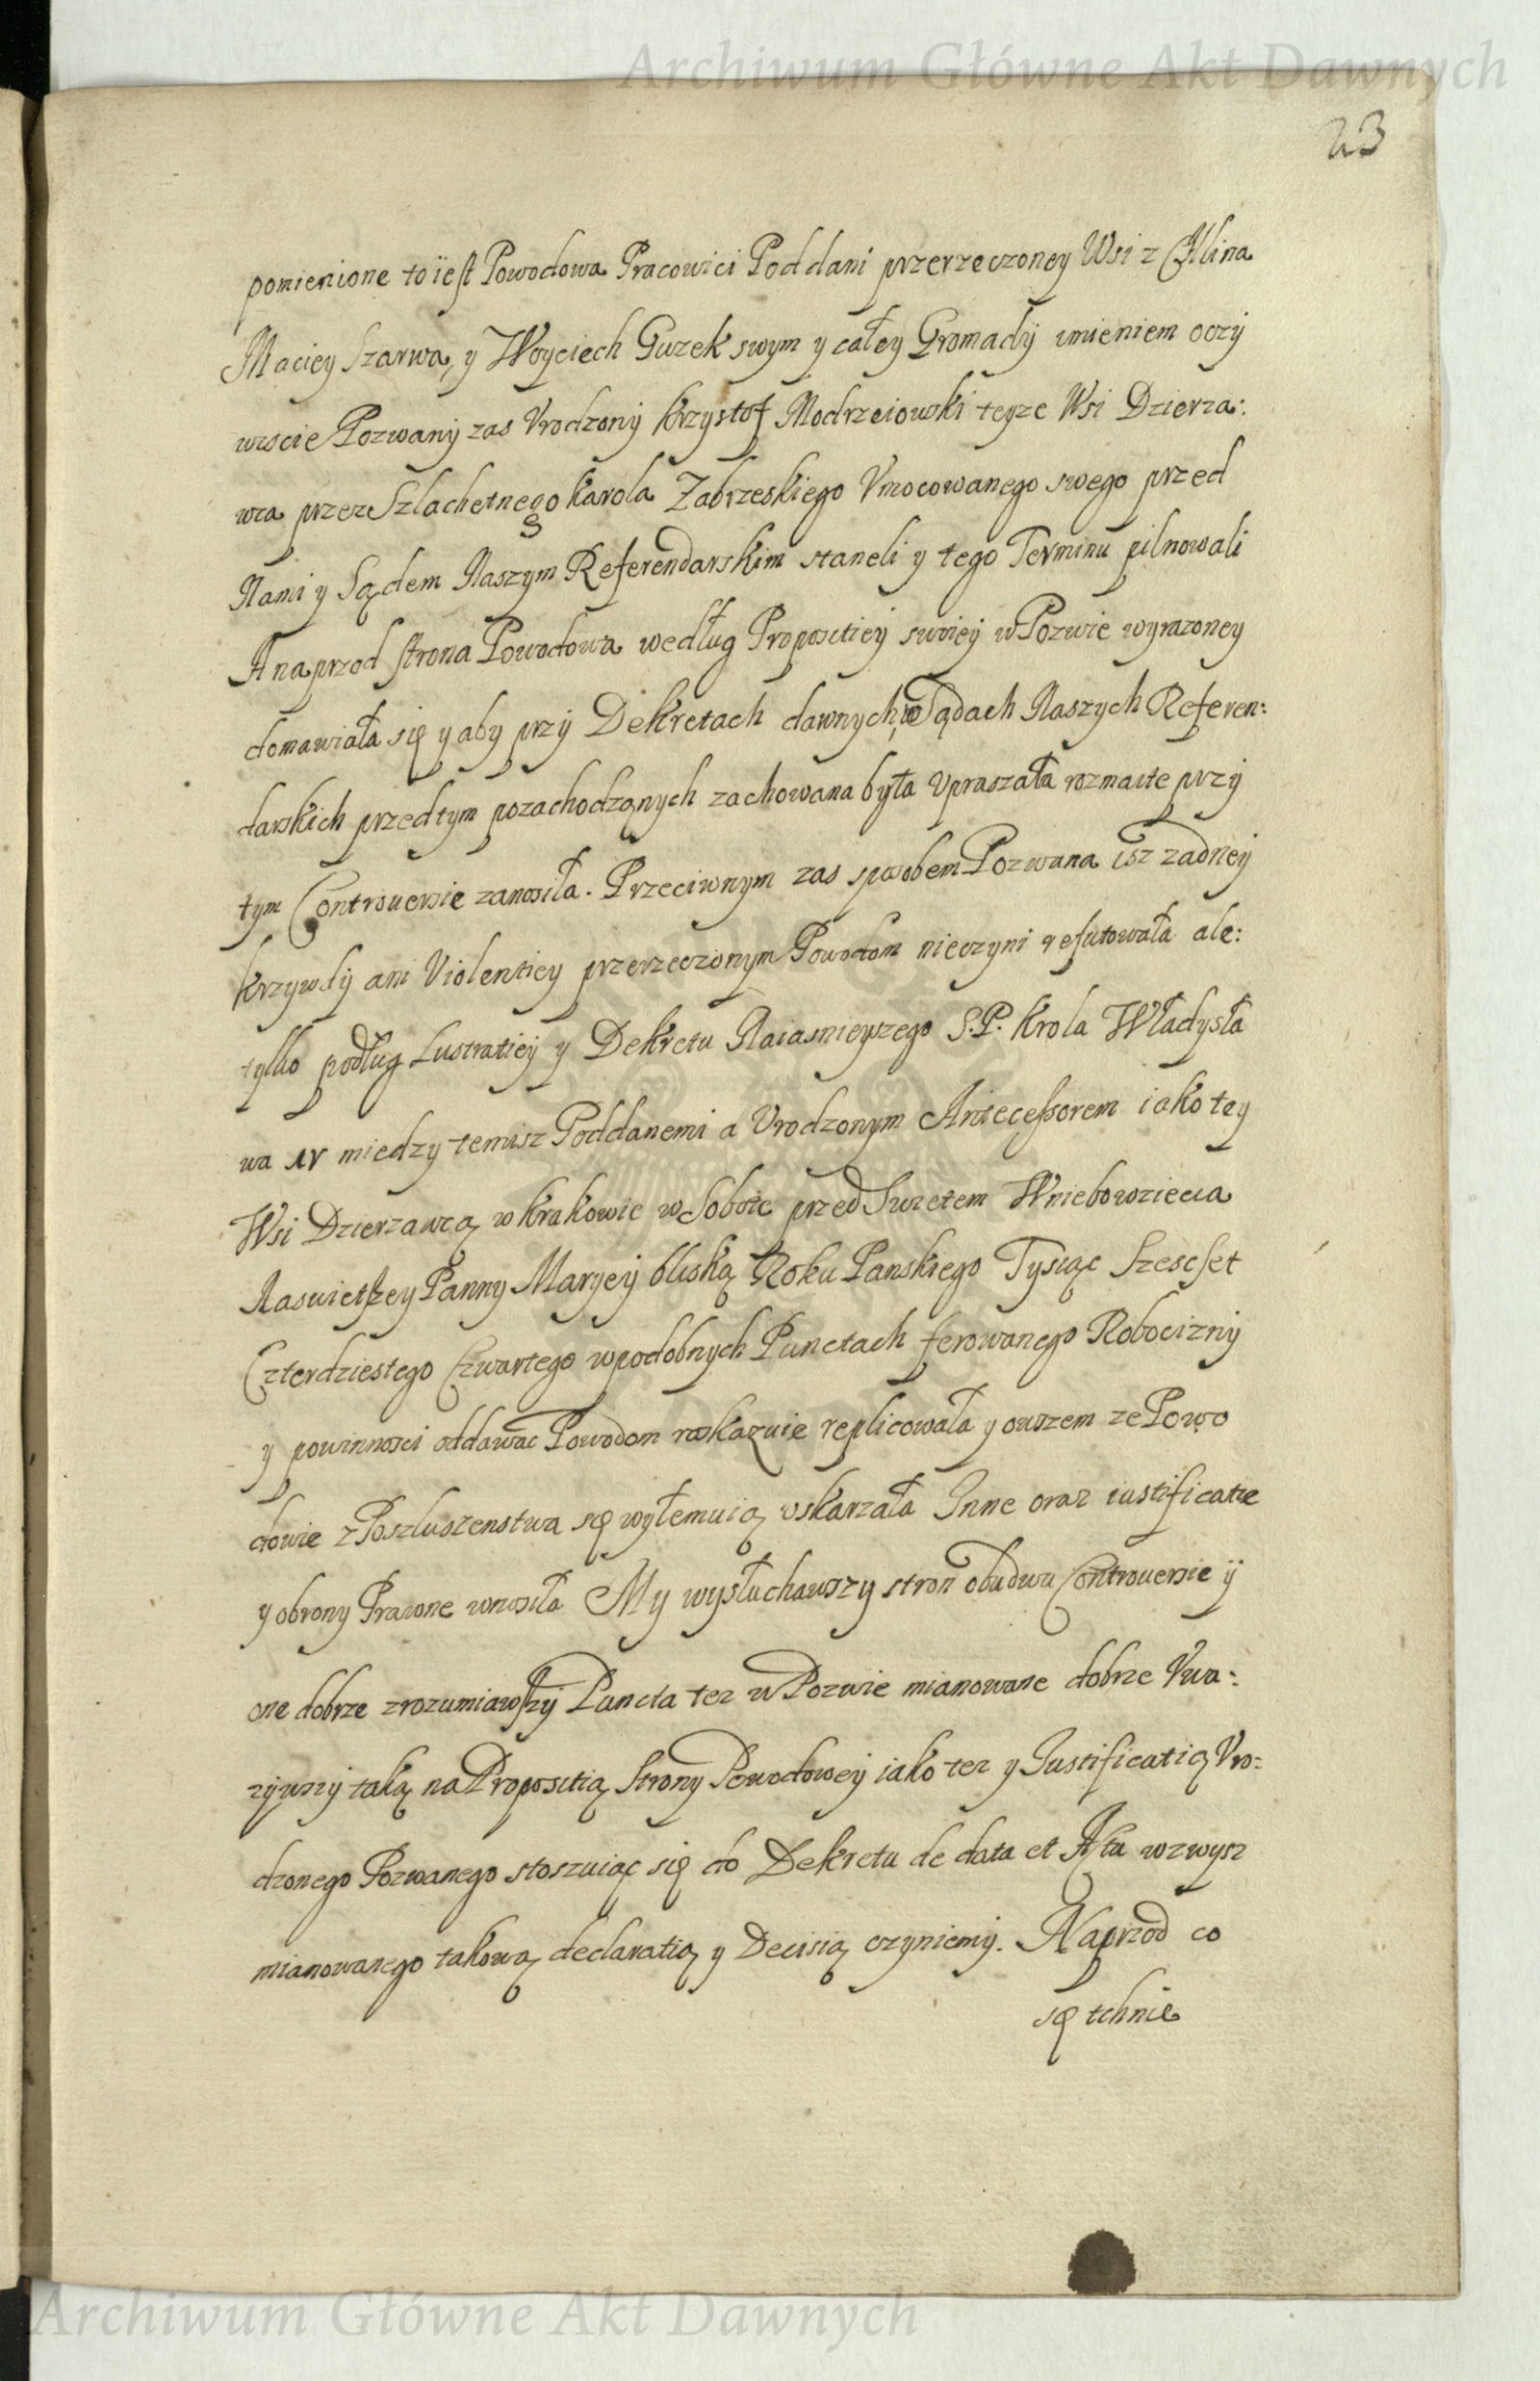 Archiwum Główne Akt Dawnych
23
pomienione to iest Powodowa Pracowici Poddani przerzeczoney Wsi z Mlina
Maciey Szarwa, y Woyciech Guzek swym y całey Gromadÿ imieniem oczÿ
wiscie Pozwanÿ zas Vrodzonÿ Krzysztof Modrzeiowski teyze Wsi Dzierza:
wca przez Szlachetnego Karola Zabrzeskiego Vmocowanego swego przed
Nami y Sądem Naszym Referendarskim staneli y tego Terminu pilnowali
A naprzod strona Powodowa według Propositiey swoieÿ w Pozwie wyrazoney
domawiała się y aby przÿ Dekretach dawnych w Sądach Naszych Referen:
darskich przedtym pozachodząnych zachowana była Vpraszała rozmaite przÿ
tym Controuersie zanosiła. Przeciwnym zas sposobem Pozwana isz zadneÿ
krzywdÿ ani Violentiey przerzeczonym Powodom nieczyni refutowała ale:
tylko podług Lustratieÿ y Dekretu Naiasnieyszego S.P. Krola Władysła
wa IV miedzy temisz Poddanemi a Vrodzonym Antecessorem iako tey
Wsi Dzierzawcą w Krakowie w Sobote przed Swietem Wniebowziecia
Naswietszey Panny Maryeÿ bliską Roku Panskiego Tysiąc Szescset
Czterdziestego Czwartego w podobnych Punctach ferowanego Robociznÿ
y powinnosci oddawac Powodom roskazuie replicowała y owszem ze Powo
dowie z Poszluszenstwa się wyłemuią vskarzała Inne oraz iustificatie
y obrony Prawne wnosiła My wysłuchawszy stron obudwu Controuersie ÿ
one dobrze zrozumiawszÿ Puncta tez w Pozwie mianowane dobrze Vwa:
zÿwszÿ taką na Propositią Strony Powodoweÿ iako tez y Iustificatią Vro:
dzonego Pozwanego stoszuiąc się do Dekretu de data et Actu wzwysz
mianowanego takową declaratią y Decisią czyniemÿ. Naprzod co
się tchnie
Archiwum Główne Akt Dawnych